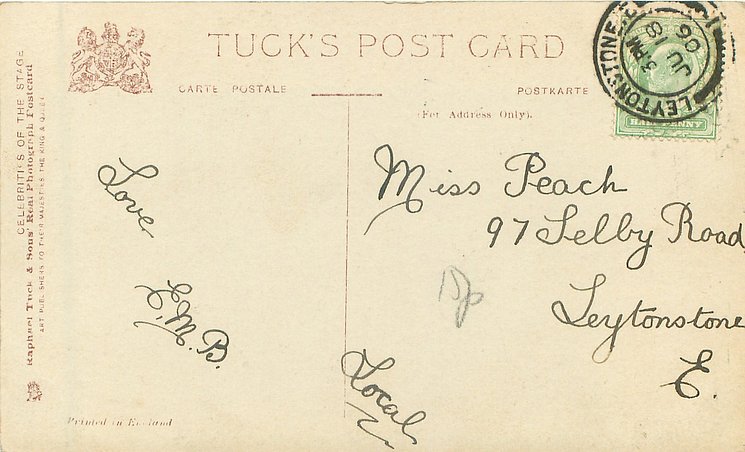 TUCK'S POST CARD
CARTE POSTALE
POSTKARTE
(For Address Only).
CELEBRITIES OF THE STAGE
Raphael Tuck & Sons' Real Photograph Postcard
ART PUBLISHERS TO THEIR MAJESTIES THE KING & QUEEN
LEYTONSTONE
3 PM
JU 8
06
HALFPENNY
Love
E.M.B.
Miss Peach
97 Selby Road
Leytonstone
E.
15p
Local
Printed in England